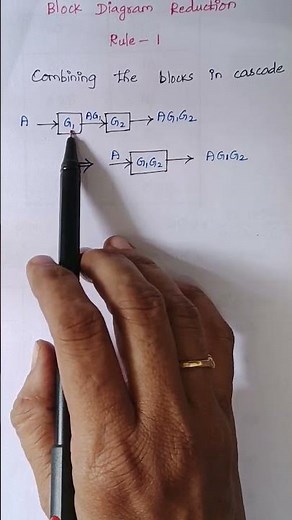 Block Diagram Reduction
Rule-1
Combining the blocks in cascade
A G₁ AG₁ G₂ AG₁G₂
A G₁G₂ AG₁G₂